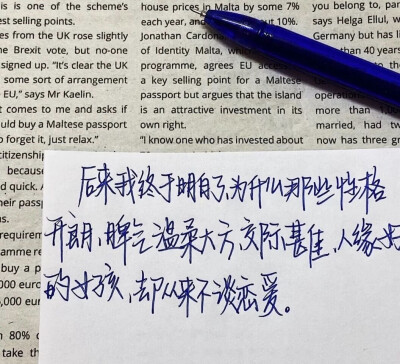 is is one of the scheme's
st selling points.
es from the UK rose slightly
e Brexit vote, but no-one
signed up. "It's clear the UK
some sort of arrangement
EU," says Mr Kaelin.
t comes to me and asks if
uld buy a Maltese passport
o forget it, just relax."
citizenship
because
d quick. A
heir passp
requirem
amme re
buy a p
000 euro
,000 eur
n 80% o
take th
house prices in Malta by some 7%
each year, and out 10%.
Jonathan Cardona,
of Identity Malta, which
programme, agrees EU access
a key selling point for a Maltese
passport but argues that the island
is an attractive investment in its
own right.
"I know one who has invested about
you belong to, par
says Helga Ellul, w
Germany but has li
than 40 years
to the
the
is
operat
more than 1,0
married, had tw
now has three gr
后来我终于明白了,为什么那些性格
开朗,脾气温柔大方,交际甚佳,人缘好
的女孩,却从来不谈恋爱。